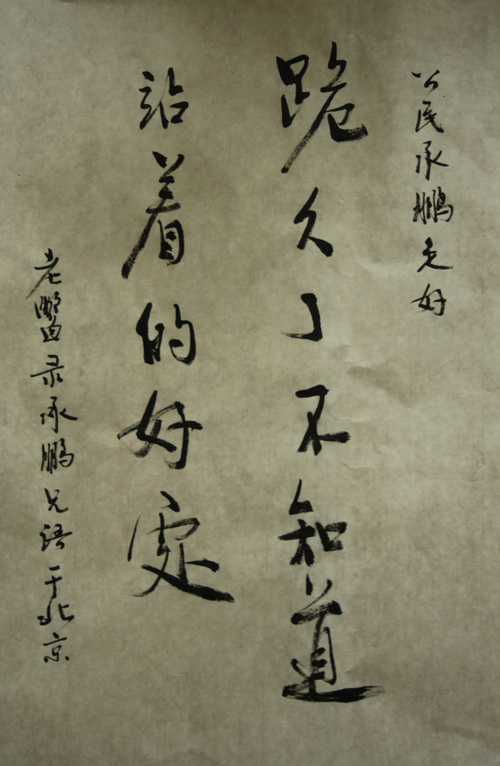 公民承鹏兄好
跪久了不知道
站着的好處
老 录承鹏兄语于北京